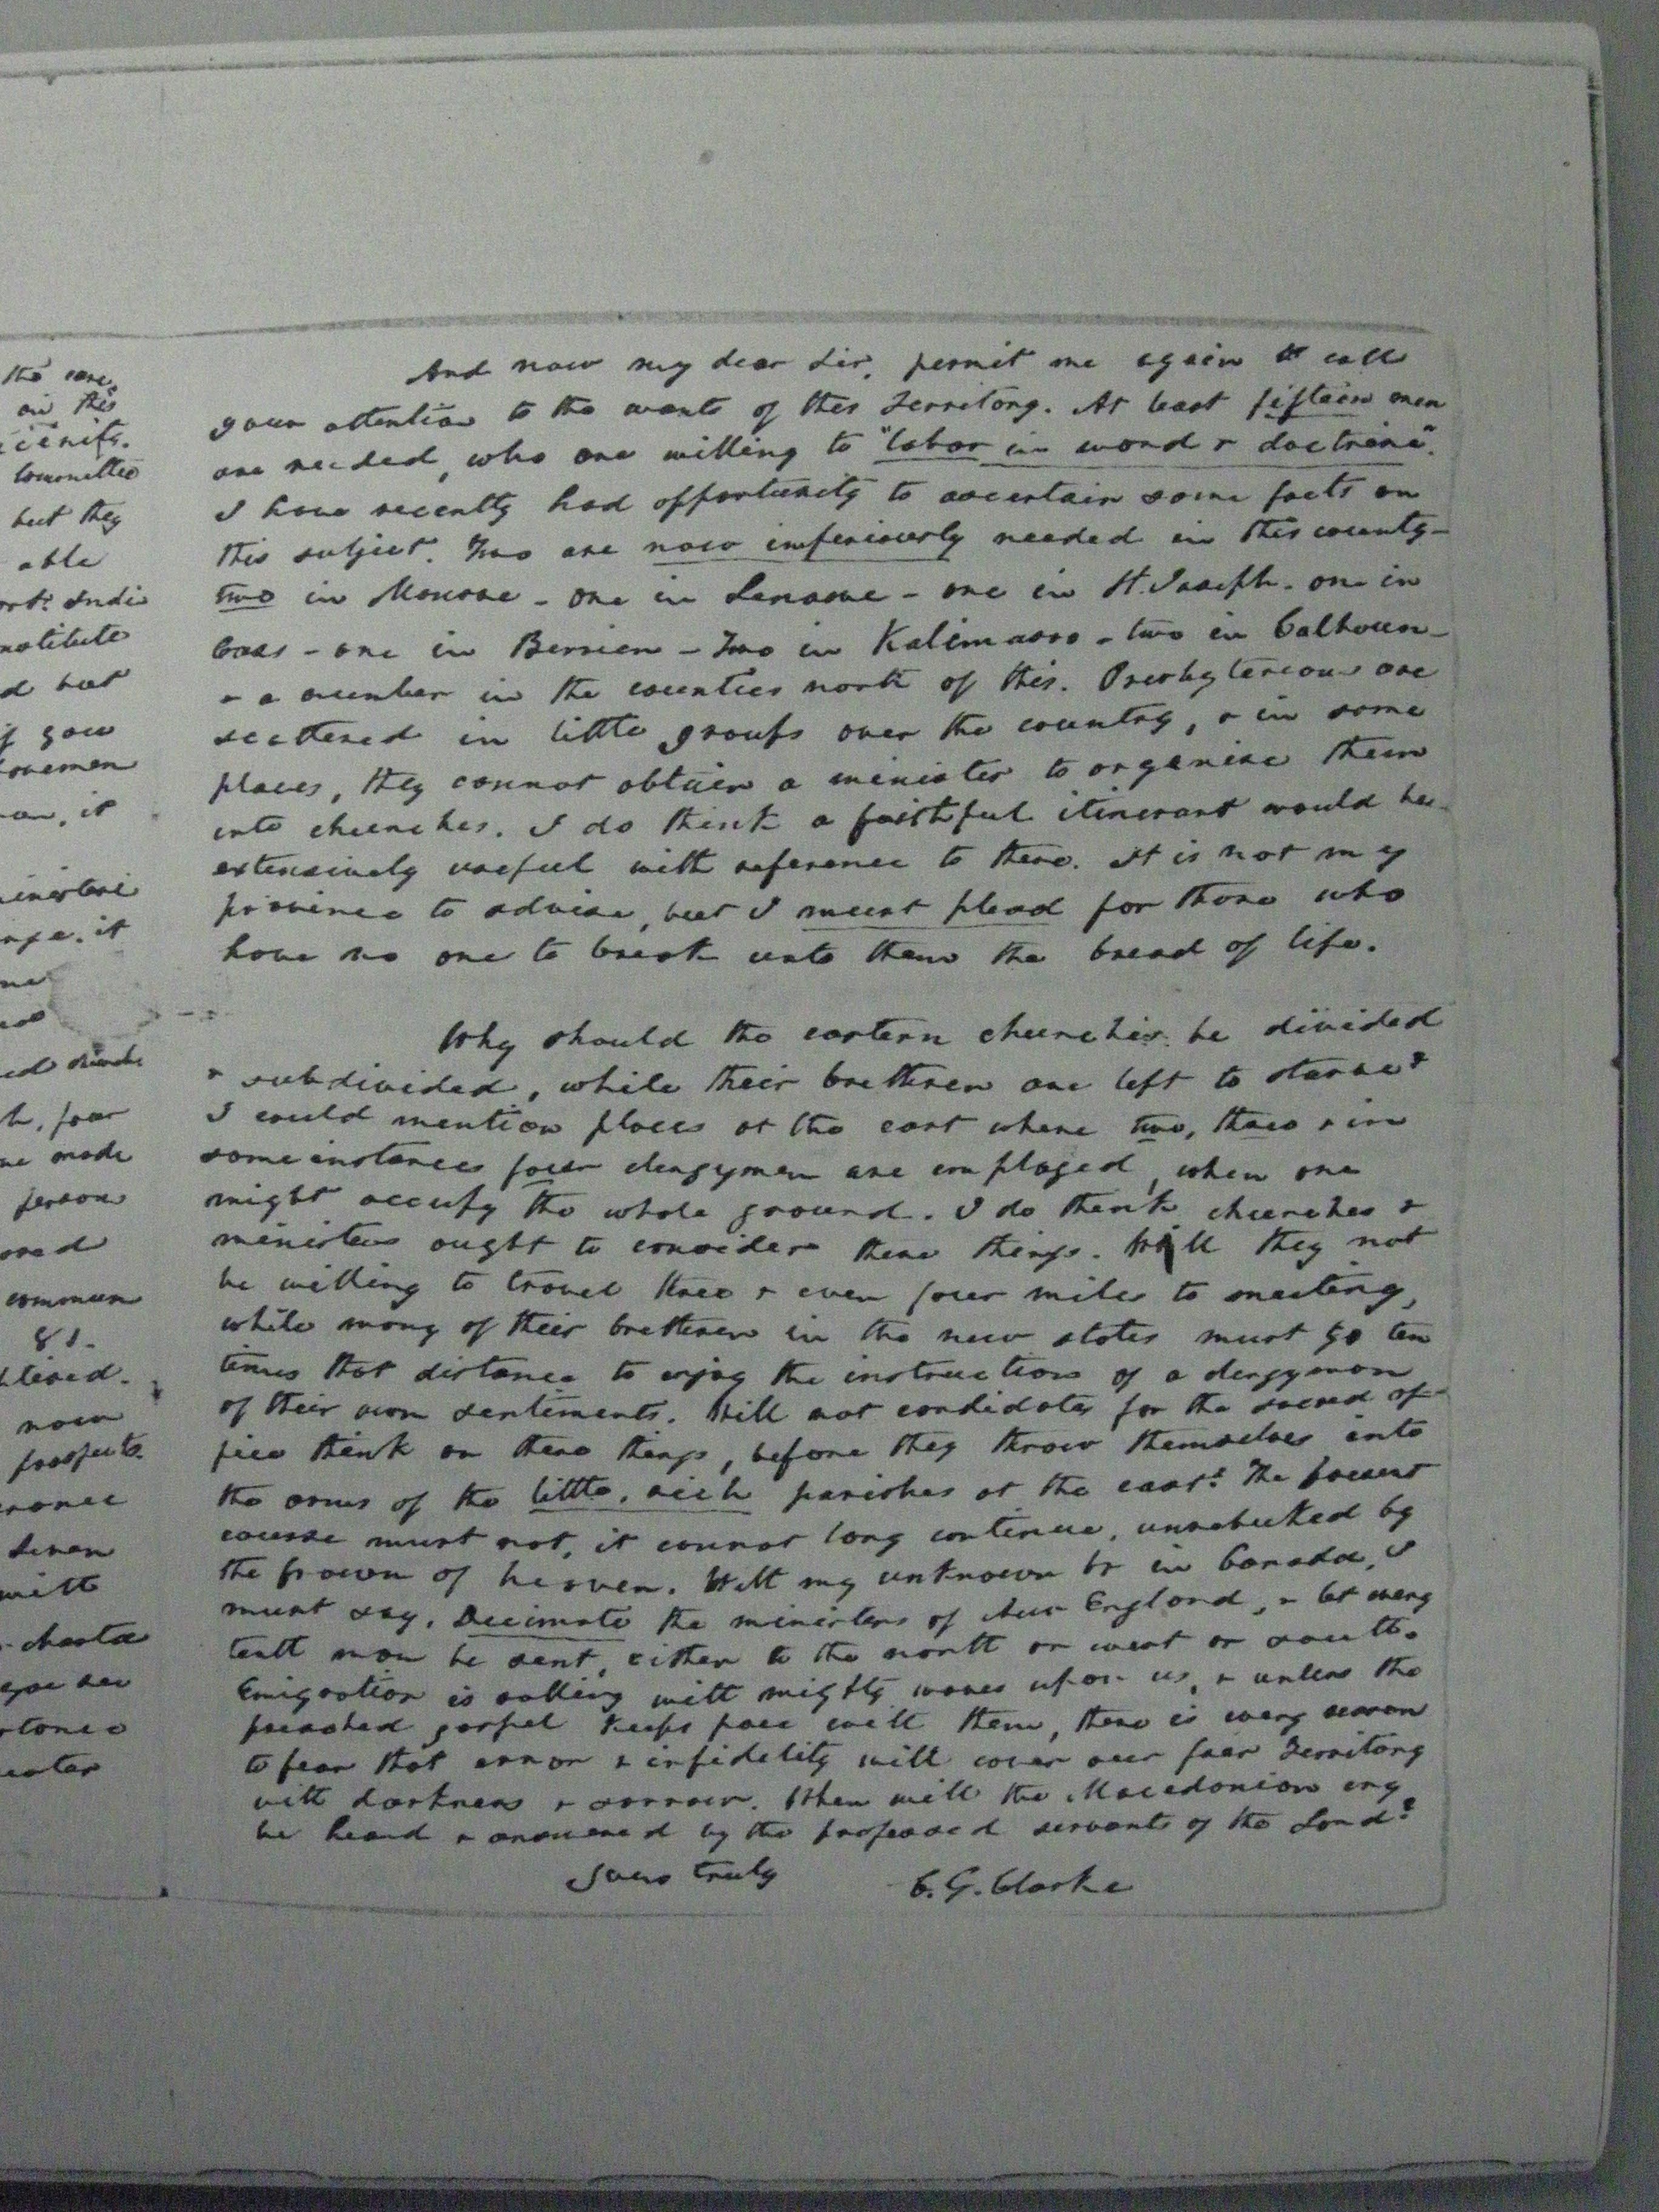 the care,
on this
icinity.
Committee
but they
able
Indi
nstitute
d but
if you
ovemen
an, it
inisteri
nge. it
me
h, four
me made
person
commun
81.
now
prospects.
Seven
with
charta
you see
And now my dear Sir, permit me again to call
your attention to the wants of this Territory. At least fifteen men
are needed, who are willing to "labor in word & doctrine".
I have recently had opportunity to ascertain some facts on
this subject. Two are now imperiously needed in this county-
two in Monroe - one in Lenawe - one in St. Joseph - one in
Cass - one in Berrien - Two in Kalimazoo - two in Calhoun -
& a number in the counties north of this. Presbyterians are
scattered in little groups over the country, & in some
places, they cannot obtain a minister to organize them
into churches. I do think a faithful itinerant would be
extensively useful with reference to these. It is not my
province to advise, but I must plead for those who
have no one to break unto them the bread of life.
Why should the eastern churches be divided
& subdivided, while their brethren are left to starve?
I could mention places at the east where two, three & in
some instances four clergymen are employed, when one
might occupy the whole ground. I do think churches &
ministers ought to consider these things. Will they not
be willing to travel three & even four miles to meeting,
while many of their brethren in the new states must go ten
times that distance to enjoy the instructions of a clergyman
of their own sentiments. Will not candidates for the sacred of-
fice think on these things, before they throw themselves into
the arms of the little, rich parishes at the east? The present
course must not, it cannot long continue, unrebuked by
the frown of heaven. With my unknown br in Canada, I
must say, Decimate the ministers of New England, & let every
tenth man be sent, either to the north or west or south.
Emigration is rolling with mighty waves upon us, & unless the
preached gospel keeps pace with them, there is every reason
to fear that error & infidelity will cover our fair Territory
with darkness & sorrow. When will the Macedonian cry
be heard & answered by the professed servants of the Lord?
Yours truly C. G. Clarke